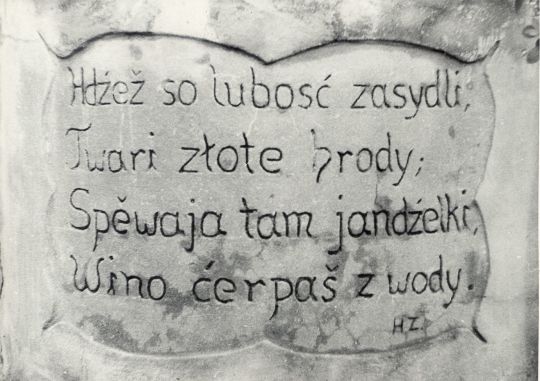 Hdźež so lubosć zasydli,
Twari złote hrody;
Spěwaja tam jandźelki,
Wino ćerpaš z wody.
H.Z.